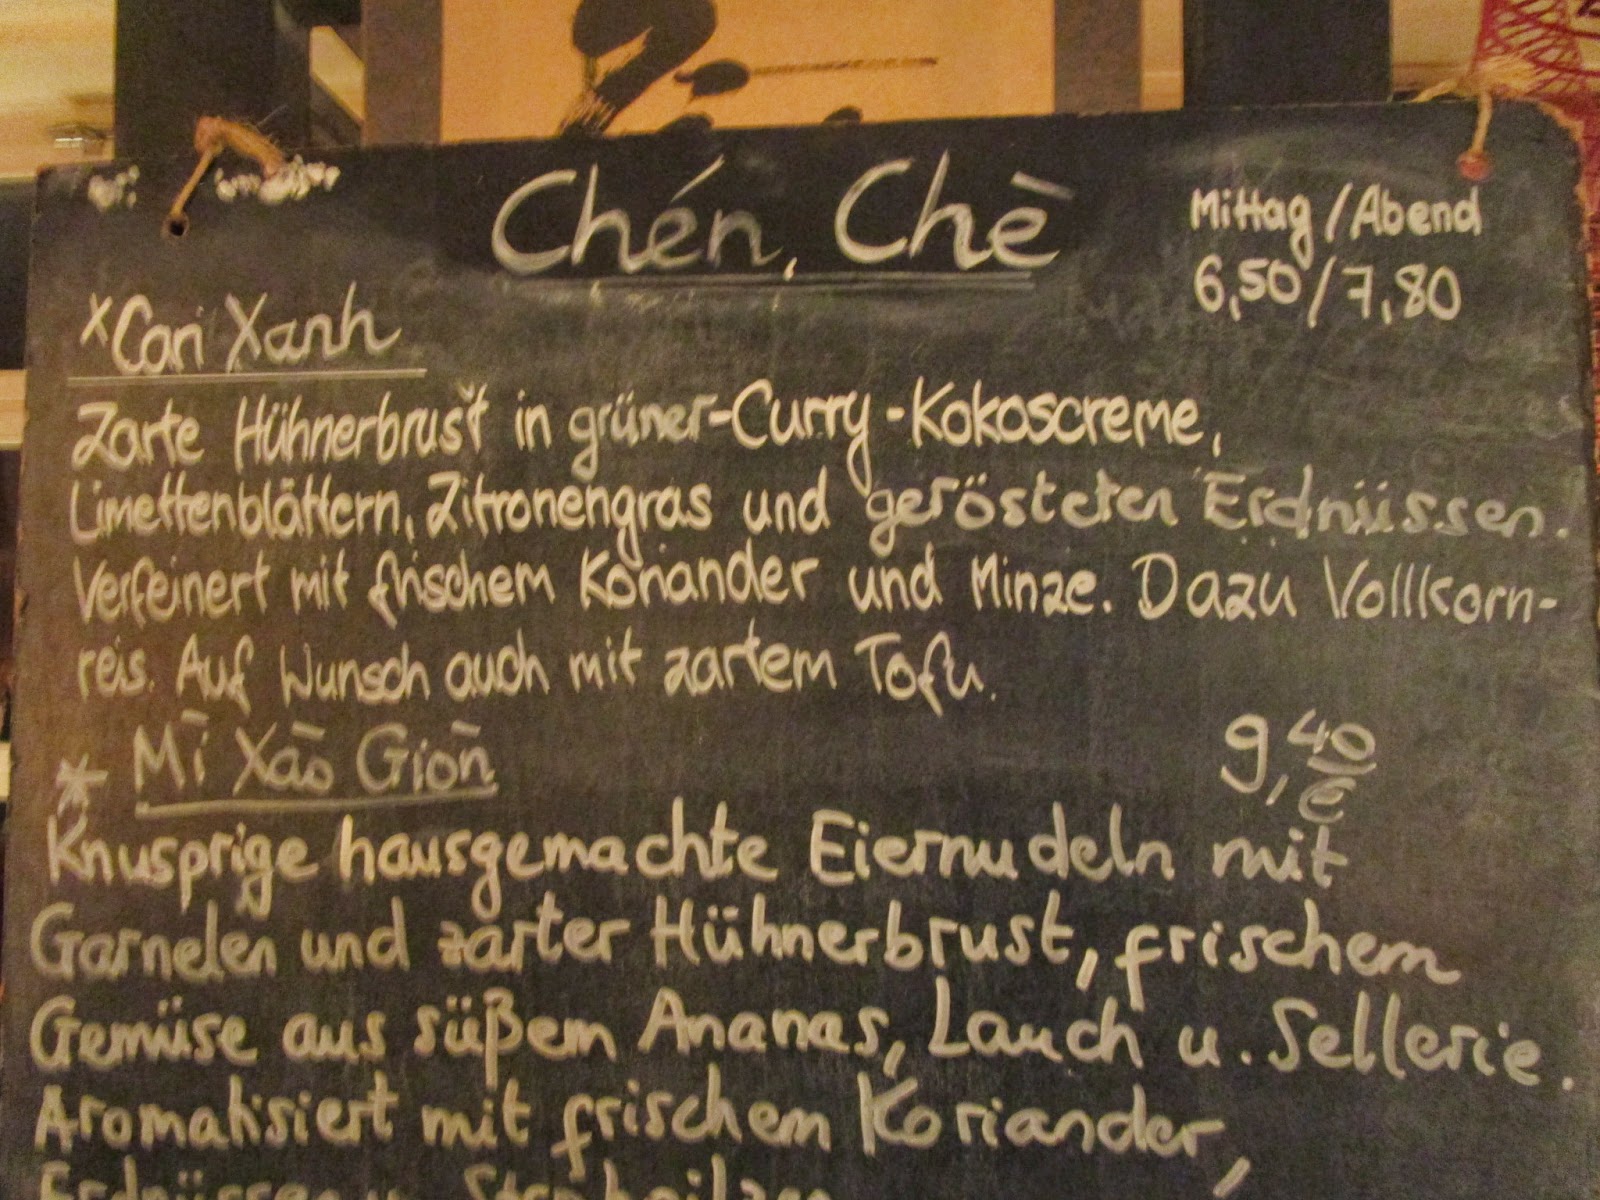 Chén, Chè
Mittag/Abend
6,50/7,80
*Cari Xanh
Zarte Hühnerbrust in grüner-Curry-Kokoscreme,
Limettenblättern, Zitronengras und gerösteten Erdnüssen.
Verfeinert mit frischem Koriander und Minze. Dazu Vollkorn-
reis. Auf Wunsch auch mit zartem Tofu.
* Mì Xào Giòn
9,40 €
Knusprige hausgemachte Eiernudeln mit
Garnelen und zarter Hühnerbrust, frischem
Gemüse aus süßem Ananas, Lauch u. Sellerie.
Aromatisiert mit frischem Koriander,
Erdnüssen u. Strohpilzen